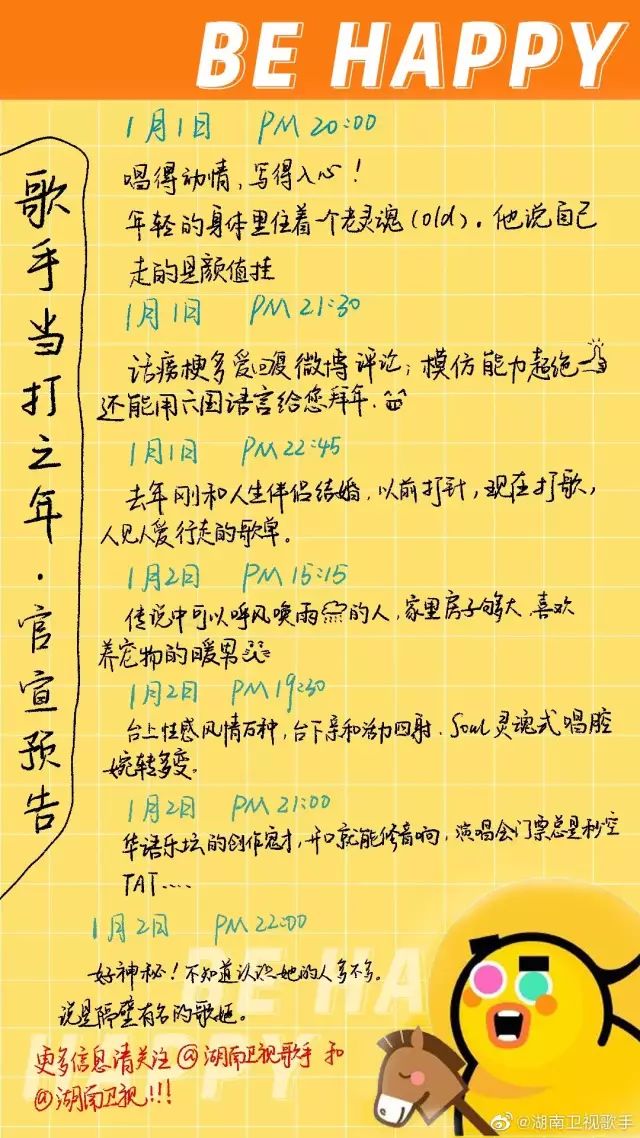 BE HAPPY
歌手当打之年·官宣预告
1月1日 PM 20:00
唱得动情,写得入心!
年轻的身体里住着一个老灵魂(old). 他说自己
走的是颜值挂
1月1日 PM 21:30
话痨梗多爱回复微博评论; 模仿能力超绝
还能用六国语言给您拜年.
1月1日 PM 22:45
去年刚和人生伴侣结婚,以前打针,现在打歌,
人见人爱行走的歌单。
1月2日 PM 15:15
传说中可以呼风唤雨的人,家里房子够大,喜欢
养宠物的暖男
1月2日 PM 19:30
台上性感风情万种,台下亲和活力四射. Soul灵魂式唱腔
婉转多变。
1月2日 PM 21:00
华语乐坛的创作鬼才,开口就能修音响,演唱会门票总是秒空
TAT....
1月2日 PM 22:00
好神秘!不知道认识她的人多不多。
说是隔壁有名的歌姬。
更多信息请关注@湖南卫视歌手 和
@湖南卫视!!!
BE HA
HAPPY
@湖南卫视歌手